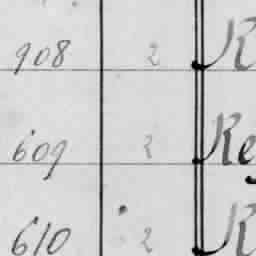 908 2 R
609 2 Re
610 2 R